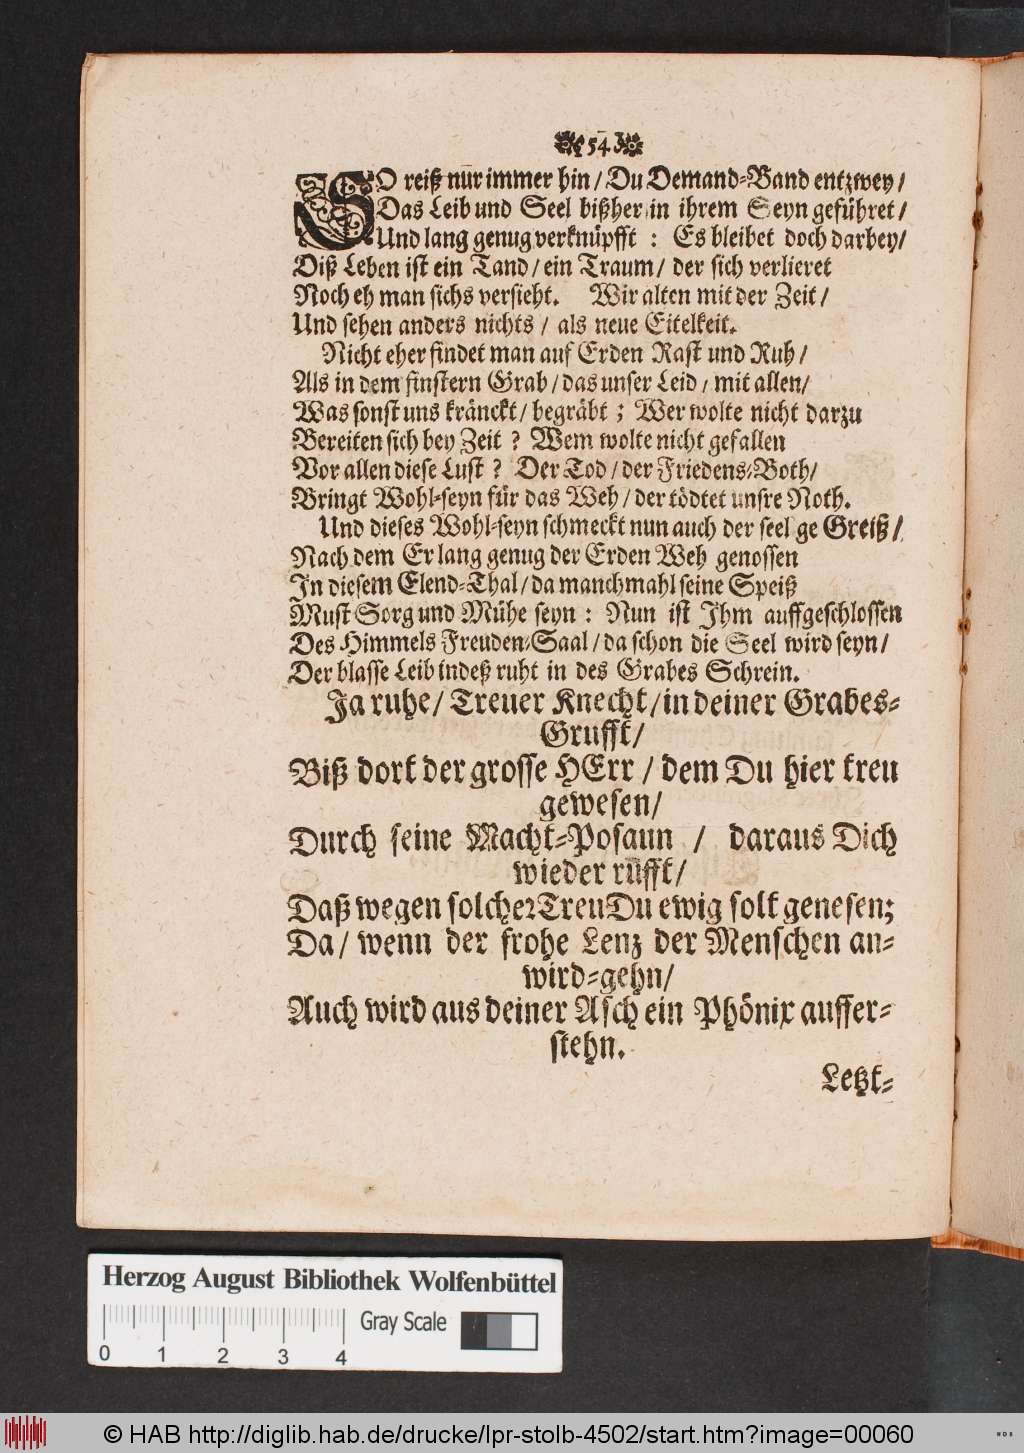 54
SO reiß nur immer hin / Du Demand-Band entzwey /
Das Leib und Seel bißher in ihrem Seyn geführet /
Und lang genug verknüpfft : Es bleibet doch darbey /
Diß Leben ist ein Tand / ein Traum / der sich verlieret
Noch eh man sichs versieht. Wir alten mit der Zeit /
Und sehen anders nichts / als neue Eitelkeit.
Nicht eher findet man auf Erden Rast und Ruh /
Als in dem finstern Grab / das unser Leid / mit allen /
Was sonst uns kränckt / begräbt ; Wer wolte nicht darzu
Bereiten sich bey Zeit ? Wem wolte nicht gefallen
Vor allen diese Lust ? Der Tod / der Friedens-Both /
Bringt Wohl-seyn für das Weh / der tödtet unsre Noth.
Und dieses Wohl-seyn schmeckt nun auch der seel ge Greiß /
Nach dem Er lang genug der Erden Weh genossen
In diesem Elend-Thal / da manchmahl seine Speiß
Must Sorg und Mühe seyn : Nun ist Ihm auffgeschlossen
Des Himmels Freuden-Saal / da schon die Seel wird seyn /
Der blasse Leib indeß ruht in des Grabes Schrein.
Ja ruhe / Treuer Knecht / in deiner Grabes-
Grufft /
Biß dort der grosse HErr / dem Du hier treu
gewesen /
Durch seine Macht-Posaun / daraus Dich
wieder rüfft /
Daß wegen solcher Treu Du ewig solt genesen;
Da / wenn der frohe Lenz der Menschen an-
wird-gehn /
Auch wird aus deiner Asch ein Phönix auffer-
stehn.
Letzt-
Herzog August Bibliothek Wolfenbüttel
Gray Scale
0 1 2 3 4
© HAB http://diglib.hab.de/drucke/lpr-stolb-4502/start.htm?image=00060